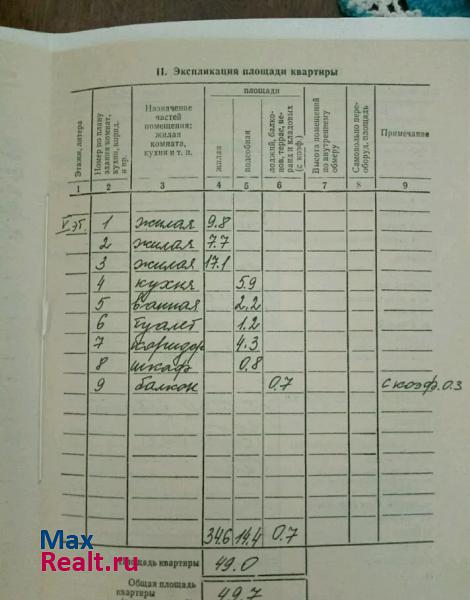 II. Экспликация площади квартиры
Этажи, литера
Номер по плану здания комнат, кухни, корид. и пр.
Назначение частей помещения: жилая комната, кухня и т. п.
площади
жилая
подсобная
лоджий, балконов, террас, веранд и кладовых (с коэф.)
Высота помещений по внутреннему обмеру
Самовольно переоборуд. площадь
Примечание
1 2 3 4 5 6 7 8 9
V эт. 1 жилая 9.8
2 жилая 7.7
3 жилая 17.1
4 кухня 5.9
5 ванная 2.2
6 туалет 1.2
7 коридор 4.3
8 шкаф 0.8
9 балкон 0.7 с коэф. 0.3
34.6 14.4 0.7
Площадь квартиры 49.0
Общая площадь квартиры 49.7
Max
Realt.ru